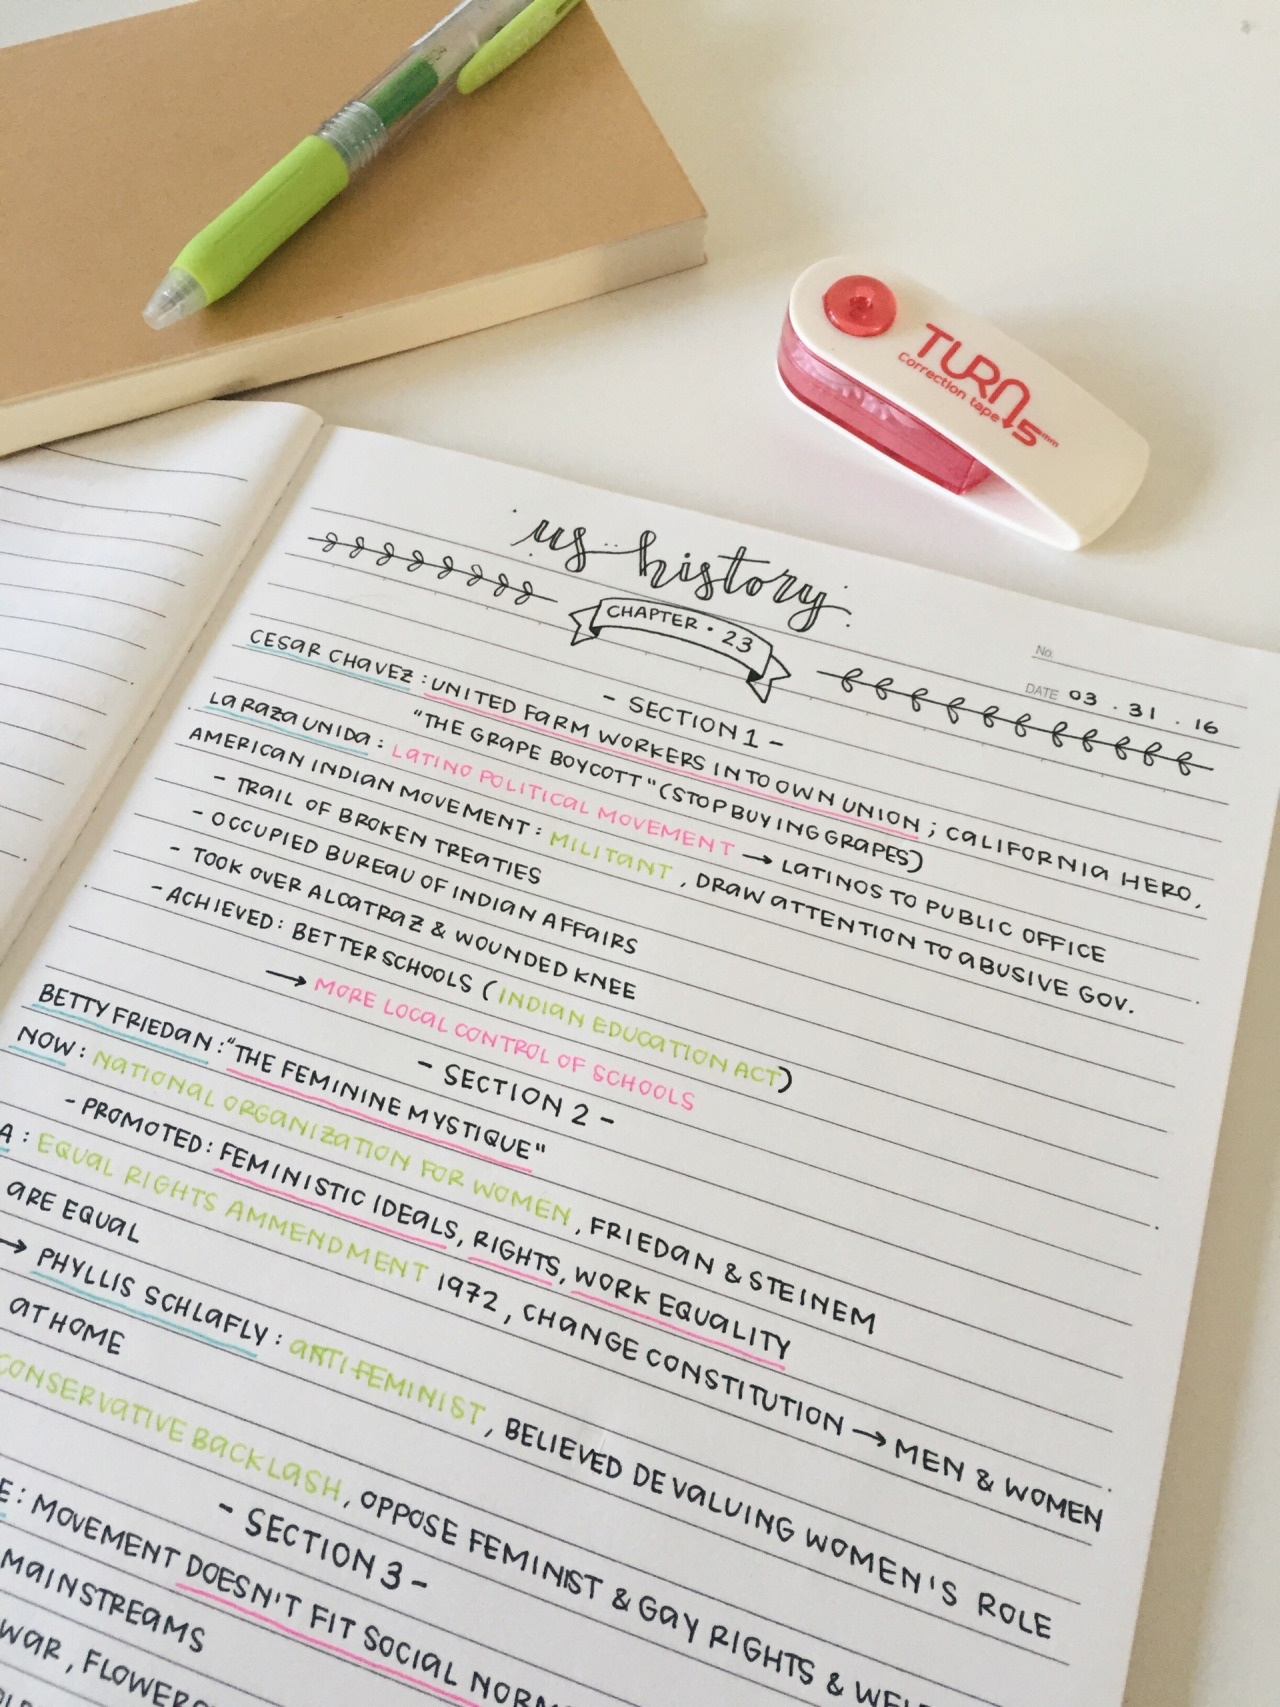 TURN
correction tape 5mm
us history
CHAPTER · 23
No.
DATE 03 . 31 . 16
- SECTION 1 -
CESAR CHAVEZ : UNITED FARM WORKERS INTO OWN UNION ; CALIFORNIA HERO,
"THE GRAPE BOYCOTT" (STOP BUYING GRAPES)
LA RAZA UNIDA : LATINO POLITICAL MOVEMENT → LATINOS TO PUBLIC OFFICE
AMERICAN INDIAN MOVEMENT : MILITANT , DRAW ATTENTION TO ABUSIVE GOV.
- TRAIL OF BROKEN TREATIES
- OCCUPIED BUREAU OF INDIAN AFFAIRS
- TOOK OVER ALCATRAZ & WOUNDED KNEE
- ACHIEVED: BETTER SCHOOLS (INDIAN EDUCATION ACT)
→ MORE LOCAL CONTROL OF SCHOOLS
- SECTION 2 -
BETTY FRIEDAN : "THE FEMININE MYSTIQUE"
NOW : NATIONAL ORGANIZATION FOR WOMEN , FRIEDAN & STEINEM
- PROMOTED : FEMINISTIC IDEALS, RIGHTS, WORK EQUALITY
A : EQUAL RIGHTS AMMENDMENT 1972 , CHANGE CONSTITUTION → MEN & WOMEN
ARE EQUAL
→ PHYLLIS SCHLAFLY : ANTIFEMINIST , BELIEVED DEVALUING WOMEN'S ROLE
AT HOME
CONSERVATIVE BACKLASH, OPPOSE FEMINIST & GAY RIGHTS &
- SECTION 3 -
E : MOVEMENT DOESN'T FIT SOCIAL
MAINSTREAMS
WAR,